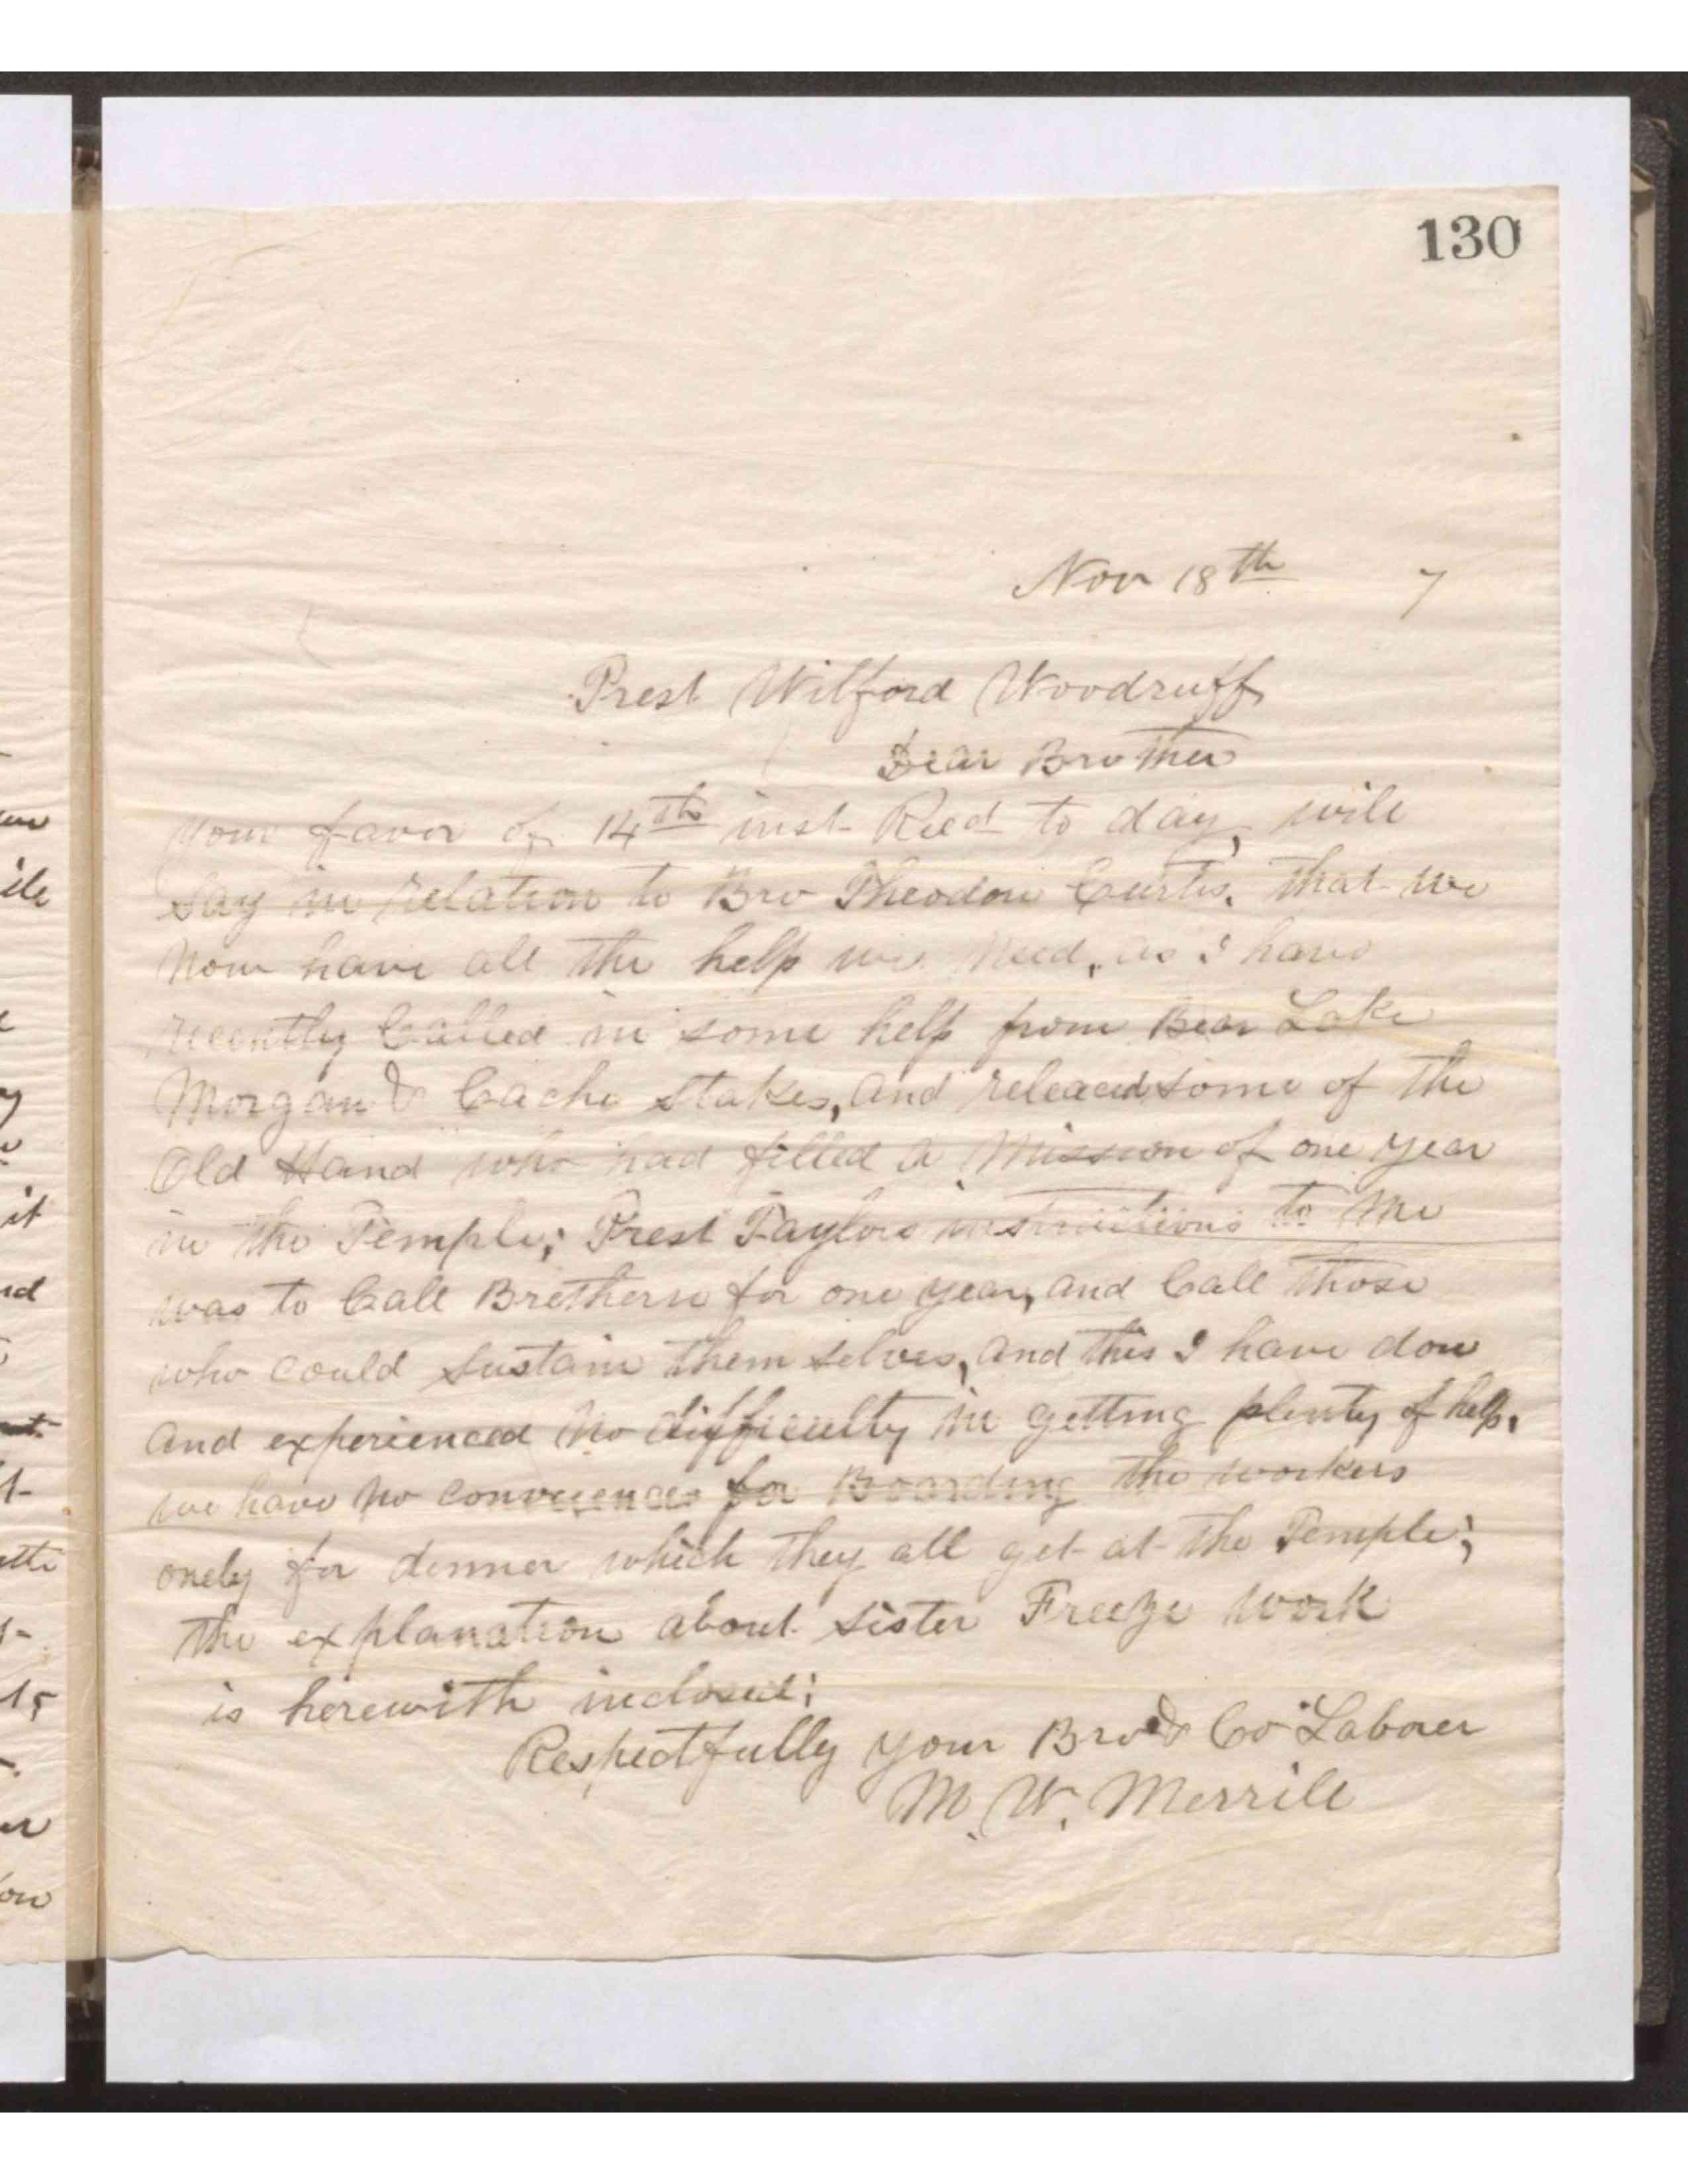 130
Nov 18th 7
Prest Wilford Woodruff
Dear Brother
your favor of 14th inst Recd to day, will
say in relation to Bro Theodore Curtis, that we
now have all the help we need, as I have
recently Called in some help from Bear Lake
Morgan & Cache Stakes, and releaced some of the
Old Hand who had filled a Mission of one year
in the Temple; Prest Taylors instructions to me
was to Call Brethern for one year, and Call those
who could sustain them selves, and this I have don
and experienced no difficulty in getting plenty of help.
we have no conveiences for Boarding the workers
onely for dinner which they all get at the Temple;
the explanation about Sister Freeze work
is herewith inclosed;
Respectfully your Bro & Co Laborer
M. W. Merrill